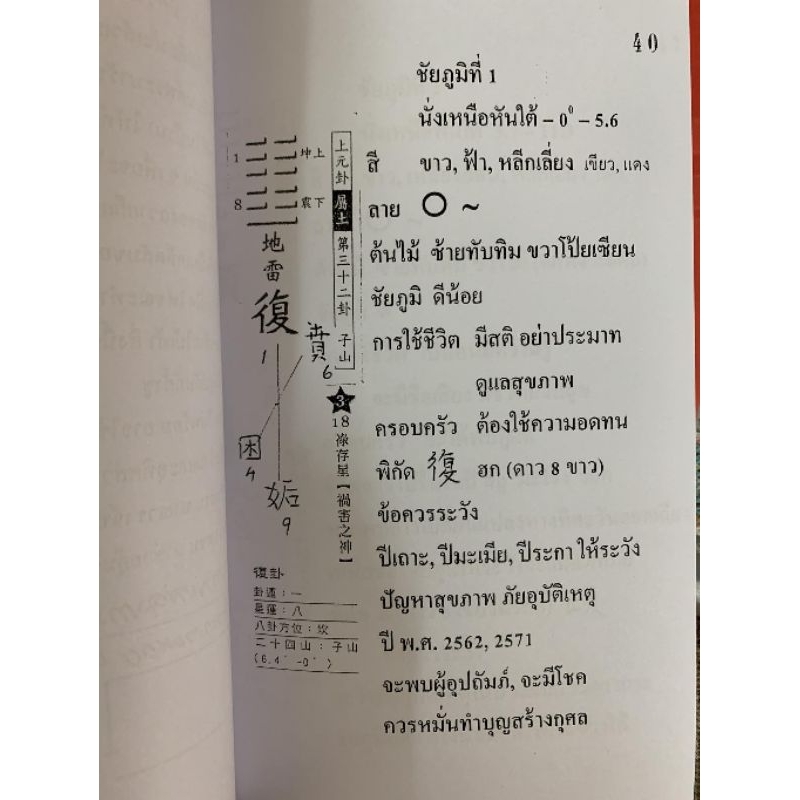 40
ชัยภูมิที่ 1
นั่งเหนือหันใต้ – 0⁰ – 5.6
สี ขาว, ฟ้า, หลีกเลี่ยง เขียว, แดง
ลาย ○ ~
ต้นไม้ ซ้ายทับทิม ขวาโป้ยเซียน
ชัยภูมิ ดีน้อย
การใช้ชีวิต มีสติ อย่าประมาท
ดูแลสุขภาพ
ครอบครัว ต้องใช้ความอดทน
พิกัด 復 ฮก (ดาว 8 ขาว)
ข้อควรระวัง
ปีเถาะ, ปีมะเมีย, ปีระกา ให้ระวัง
ปัญหาสุขภาพ ภัยอุบัติเหตุ
ปี พ.ศ. 2562, 2571
จะพบผู้อุปถัมภ์, จะมีโชค
ควรหมั่นทำบุญสร้างกุศล
1 坤上
8 震下
地雷
復
1
賁
6
困
4
姤
9
上元卦 屬土 第三十二卦 子山
3
18
祿存星【禍害之神】
復卦
卦運：一
星運：八
八卦方位：坎
二十四山：子山
(6.4° -0°)